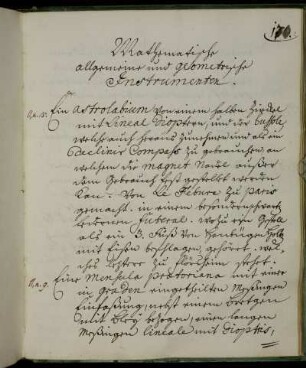 170.
Mathematische
allgemeine und geometrische
Instrumenten.
Ein Astrolabium von einem halben Zirkel
mit Lineal Dioptern, und der Bussole,
welche auch heraus zu nehmen und als ein
Decliner Compass zu gebrauchen, an
welchem die Magnet Nadel außer
dem Gebrauch fest gestellet werden
kan. Von Le Febure zu Paris
gemacht. in einem
ledernen Futeral. wozu ein Gestell
als ein 3. Fuß von
mit Eisen beschlagen, gehöret, wel-
ches letztere zu steht.
Eine Mensula Praetoriana mit einer
in Graden eingetheilten Meßingen
Einfaßung, nebst einem Bretgen
mit Bley bezogen, einem langen
Meßingen Lineale mit Dioptern,